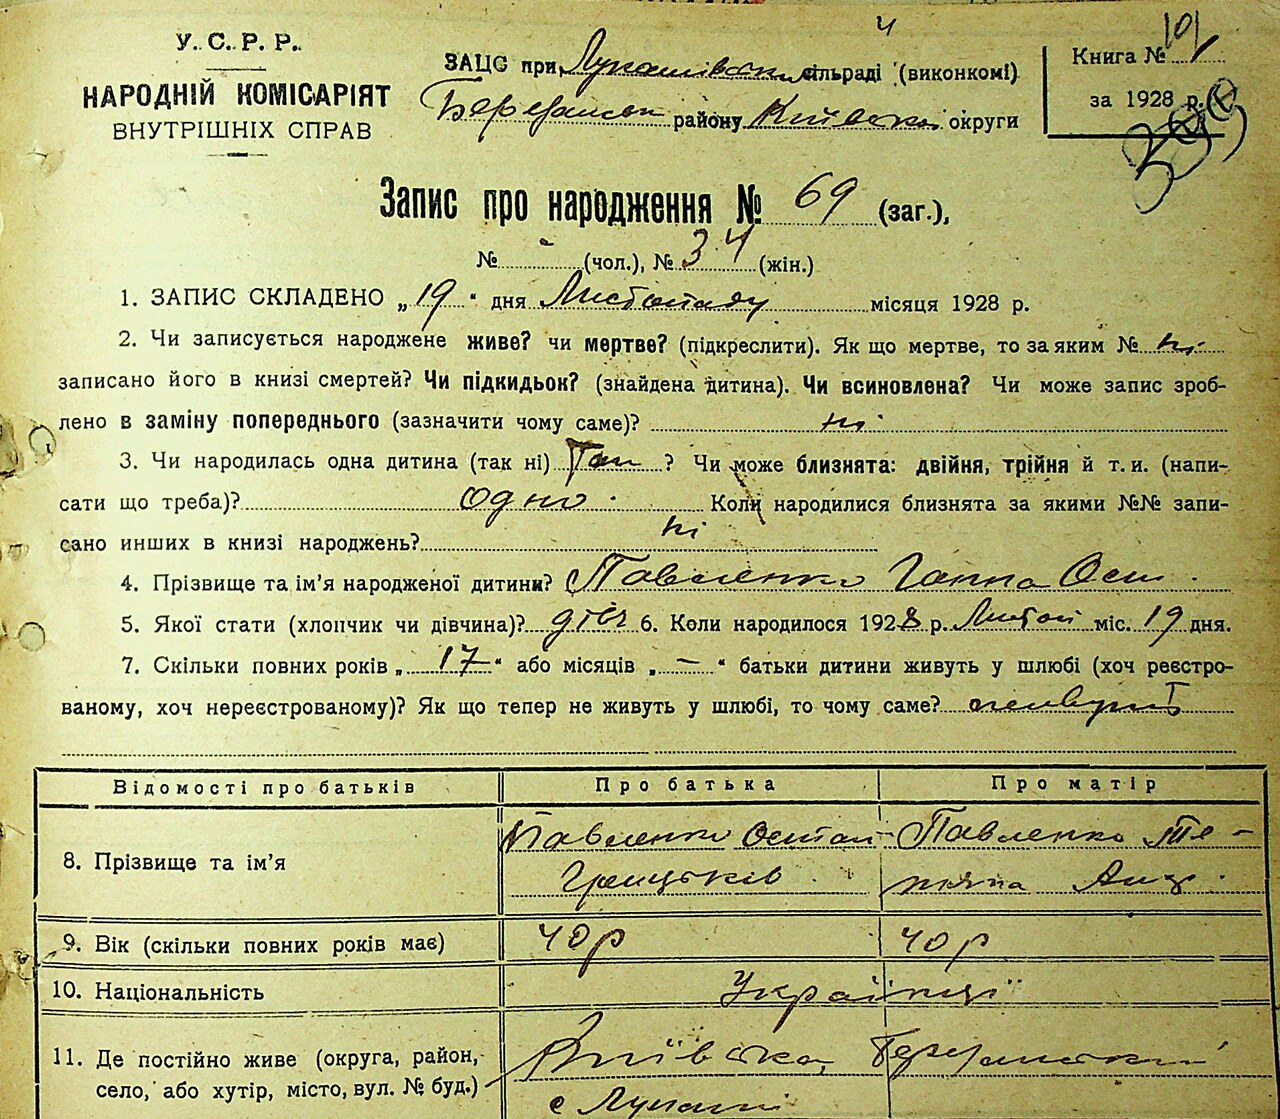 У.С.Р.Р.
НАРОДНІЙ КОМІСАРІЯТ
ВНУТРІШНІХ СПРАВ
ЗАЦС при Лукашівськ сільраді (виконкомі)
Березанськ району Київськ округи
Книга № 101
за 1928 р.
Запис про народження № 69 (заг.),
№ - (чол.), № 34 (жін.)
1. ЗАПИС СКЛАДЕНО „19“ дня Листопаду місяця 1928 р.
2. Чи записується народжене живе? чи мертве? (підкреслити). Як що мертве, то за яким № ні
записано його в книзі смертей? Чи підкидьок? (знайдена дитина). Чи всиновлена? Чи може запис зроб-
лено в заміну попереднього (зазначити чому саме)? ні
3. Чи народилась одна дитина (так ні) Так ? Чи може близнята: двійня, трійня й т. и. (напи-
сати що треба)? одно. Коли народилися близнята за якими №№ запи-
сано инших в книзі народжень? ні
4. Прізвище та ім’я народженої дитини? Павленко Ганна Ост.
5. Якої стати (хлопчик чи дівчина)? дівч 6. Коли народилося 1928 р. Листоп міс. 19 дня.
7. Скільки повних років „17“ або місяців „-“ батьки дитини живуть у шлюбі (хоч реєстро-
ваному, хоч нереєстрованому)? Як що тепер не живуть у шлюбі, то чому саме? живуть
Відомості про батьків Про батька Про матір
8. Прізвище та ім’я Павленко Остап Грицьків Павленко Те-
тяна Анд.
9. Вік (скільки повних років має) 40 р 40 р
10. Національність Українці
11. Де постійно живе (округа, район, Київська, Березанський
село, або хутір, місто, вул. № буд.) с Лукаші